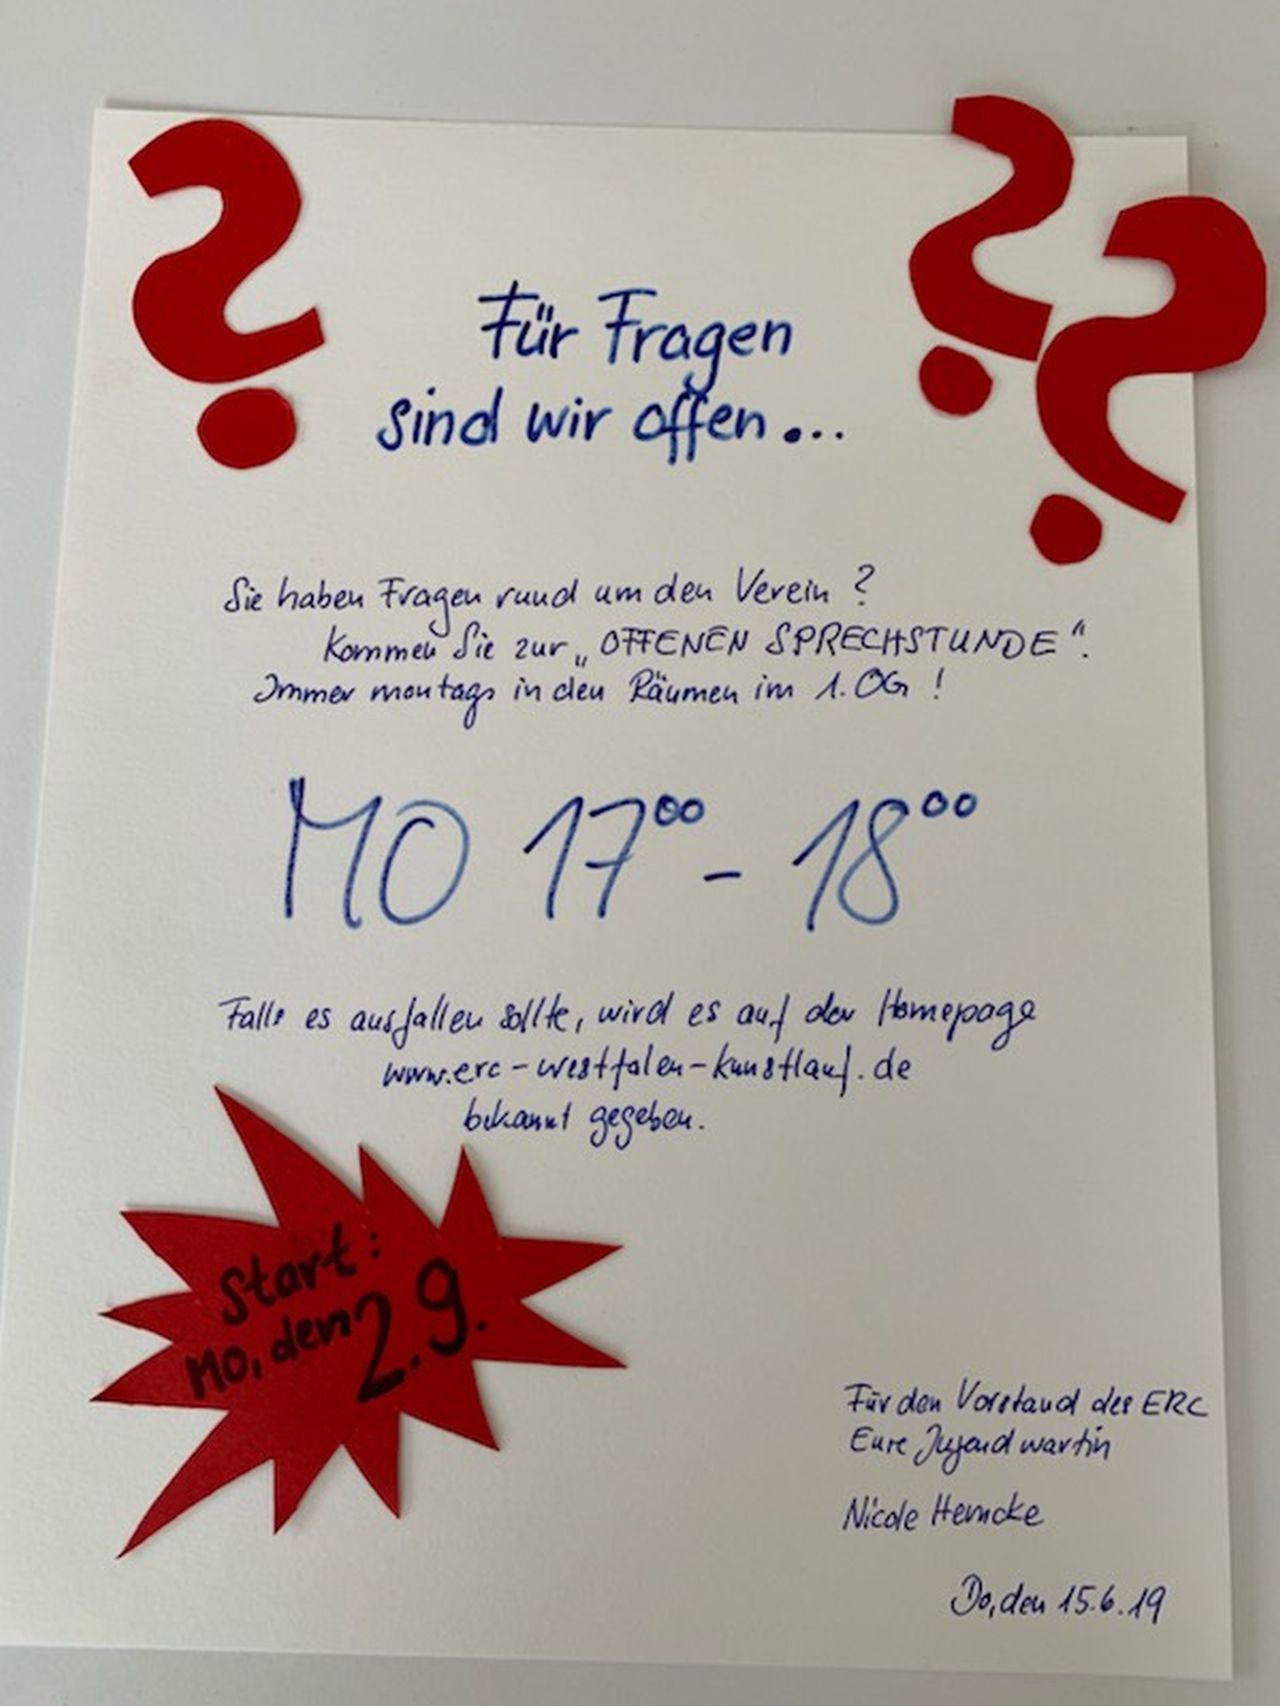 Für Fragen
sind wir offen...
Sie haben Fragen rund um den Verein ?
Kommen Sie zur „OFFENEN SPRECHSTUNDE“.
Immer montags in den Räumen im 1. OG !
MO 17⁰⁰ - 18⁰⁰
Falls es ausfallen sollte, wird es auf der Homepage
www.erc-westfalen-kunstlauf.de
bekannt gegeben.
Start:
Mo, den 2.9.
Für den Vorstand des ERC
Eure Jugendwartin
Nicole
Do, den 15.6.19